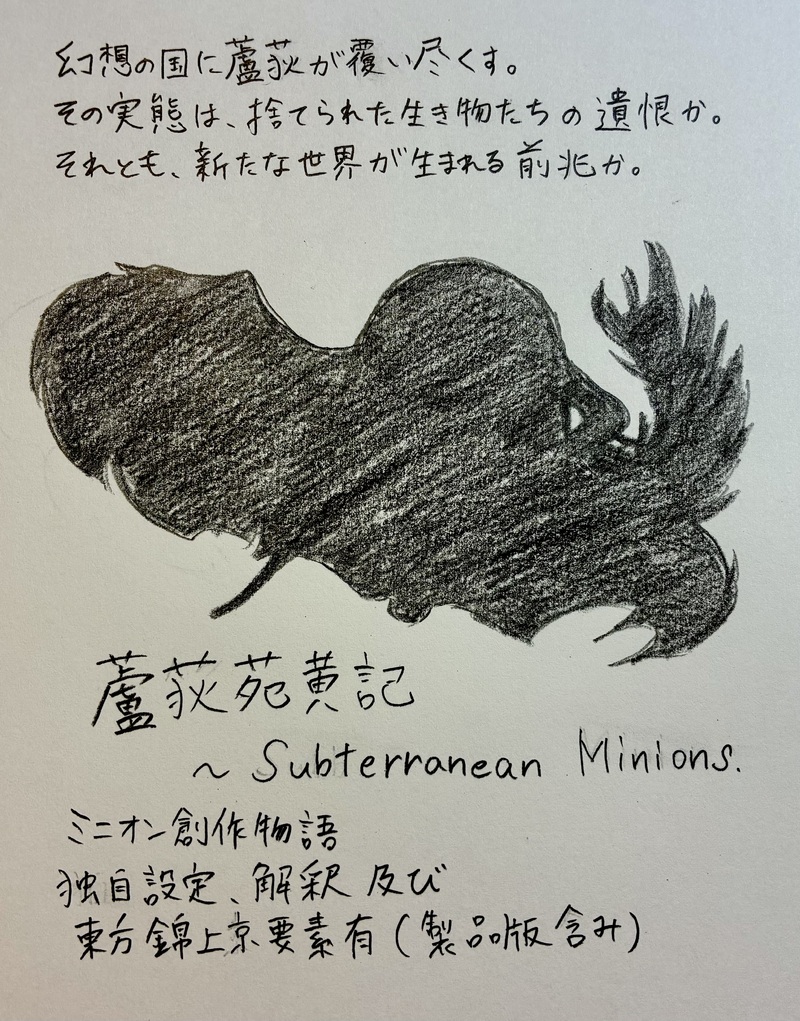 幻想の国に蘆荻が覆い尽くす。
その実態は、捨てられた生き物たちの遺恨か。
それとも、新たな世界が生まれる前兆か。
蘆荻苑黄記
～Subterranean Minions.
ミニオン創作物語
独自設定、解釈及び
東方錦上京要素有(製品版含み)